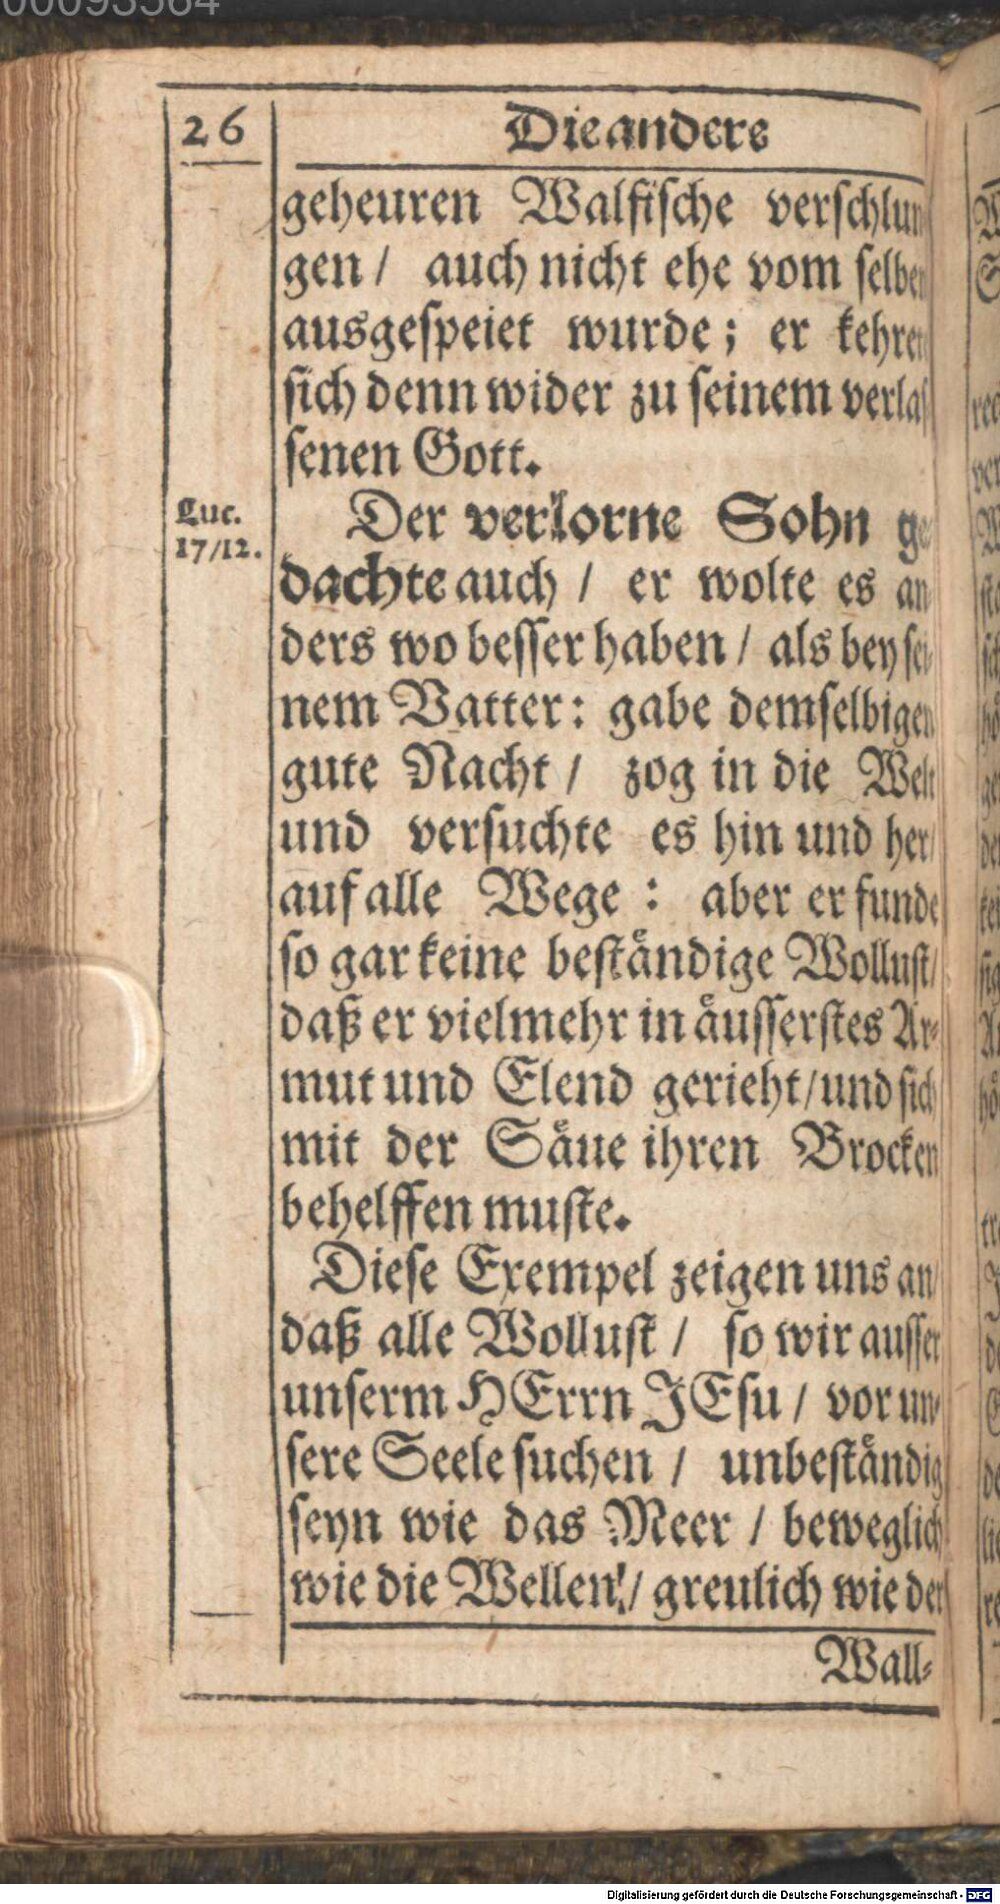 00093564
26
Die andere
geheuren Walfische verschlun
gen / auch nicht ehe vom selben
ausgespeiet wurde; er kehret
sich denn wider zu seinem verlas
senen Gott.
Luc.
17/12.
Der verlorne Sohn ge
dachte auch / er wolte es an
ders wo besser haben / als bey sei
nem Vatter: gabe demselbigen
gute Nacht / zog in die Welt
und versuchte es hin und her/
auf alle Wege : aber er funde
so gar keine beständige Wollust/
daß er vielmehr in äusserstes Ar-
mut und Elend gerieht/und sich
mit der Säue ihren Brocken
behelffen muste.
Diese Exempel zeigen uns an/
daß alle Wollust / so wir ausser
unserm HErrn JEsu / vor un-
sere Seele suchen / unbeständig
seyn wie das Meer / beweglich
wie die Wellen!/ greulich wie der
Wall-
Digitalisierung gefördert durch die Deutsche Forschungsgemeinschaft - DFG